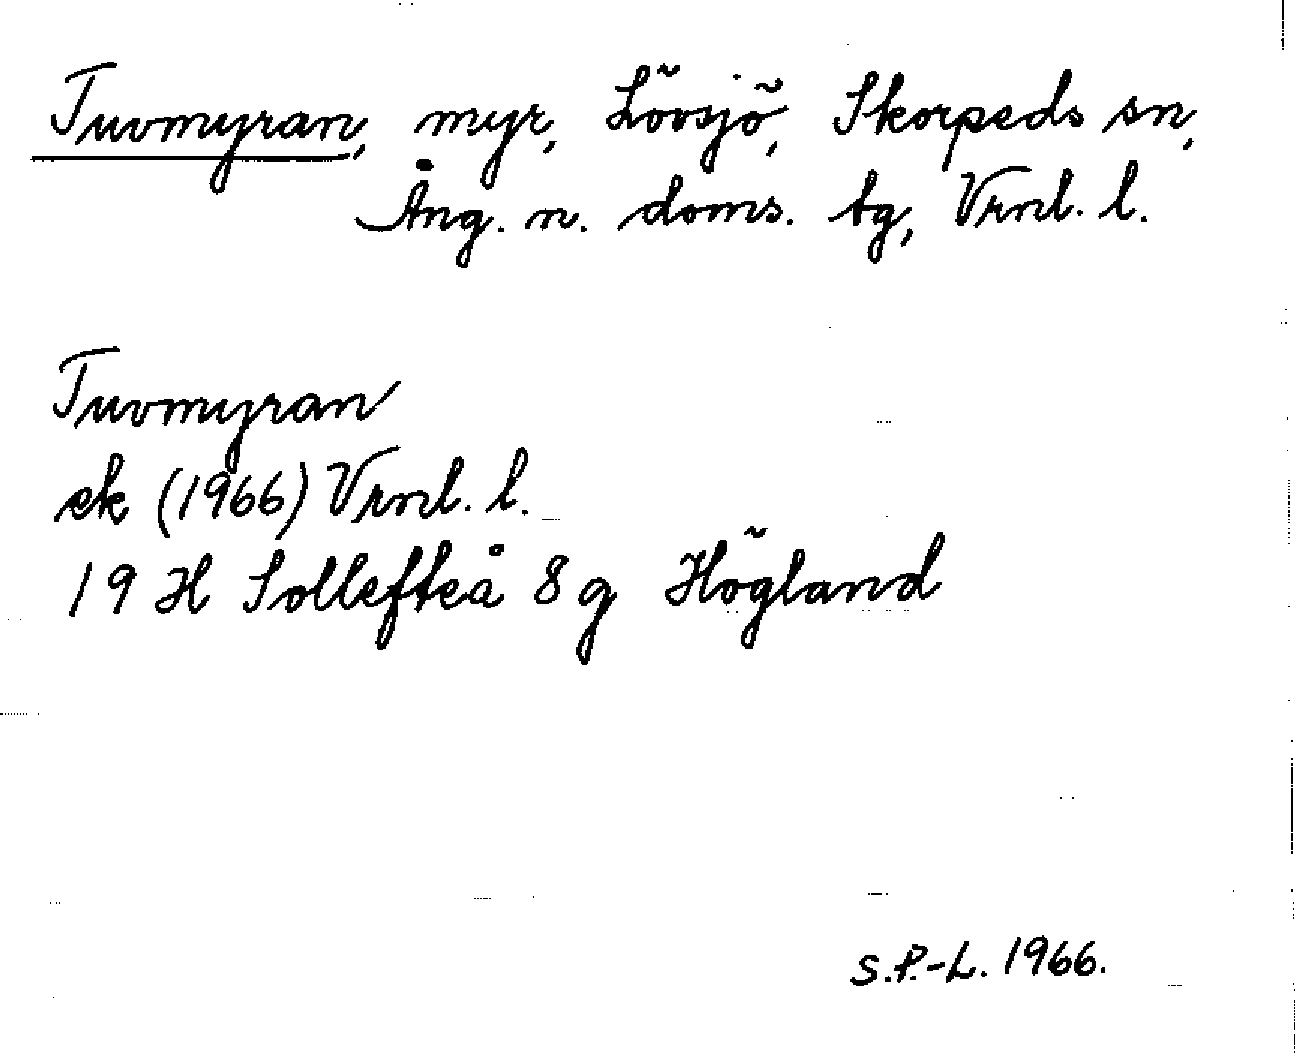 Tuvmyran, myr, Lövsjö, Skorpeds sn,
Ång. n. doms. tg, Vrnl. l.
Tuvmyran
ek (1966) Vrnl. l.
19 H Sollefteå 8 g Högland
S.P.-L. 1966.